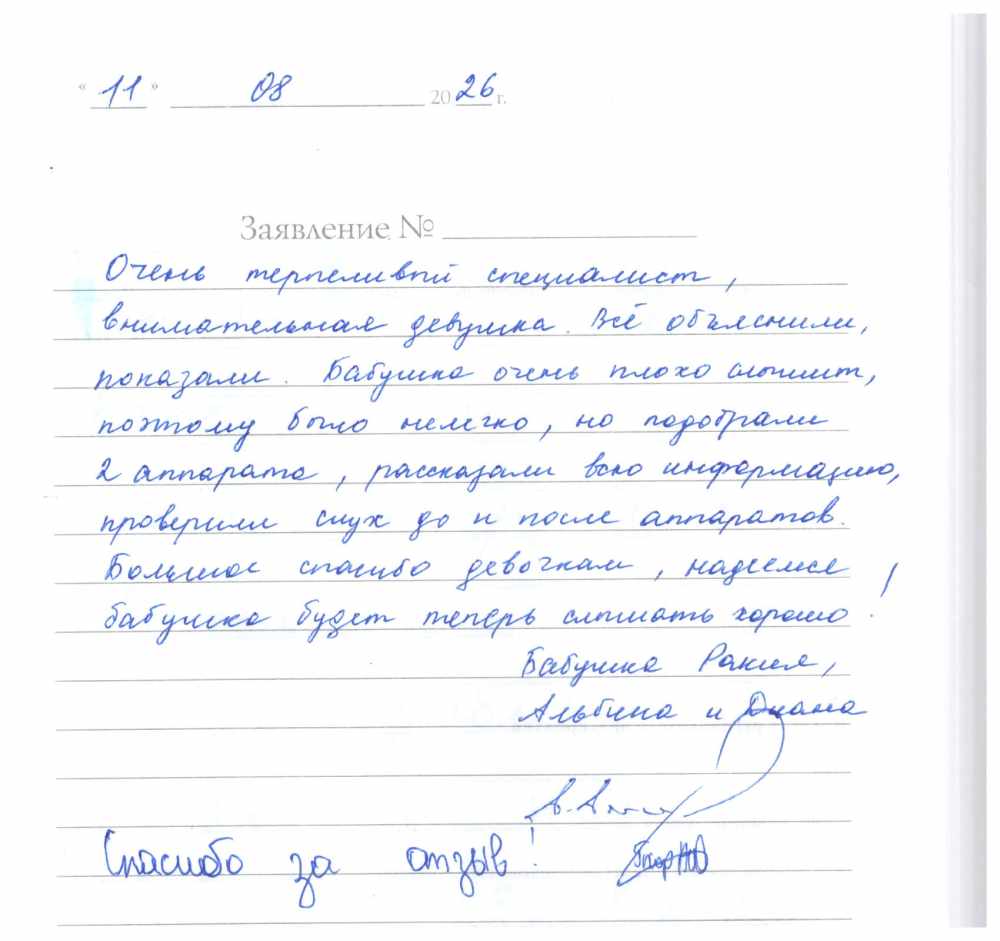 " 11 " 08 2026 г.
Заявление № 
Очень терпеливый специалист,
внимательная девушка. Всё объяснили,
показали. Бабушка очень плохо слышит,
поэтому было нелегко, но подобрали
2 аппарата, рассказали всю информацию,
проверили слух до и после аппаратов.
Большое спасибо девочкам, надеемся
бабушка будет теперь слышать хорошо!
Бабушка Ракия,
Альбина и Диана
Спасибо за отзыв!